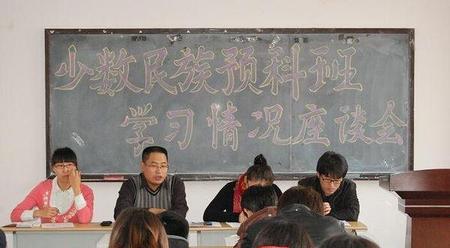 少数民族预科班
学习情况座谈会